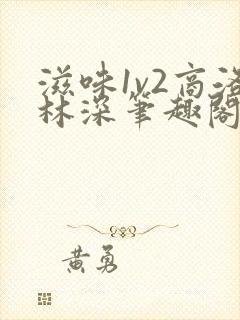 滋味1v2高洛
林深笔趣阁
黄勇